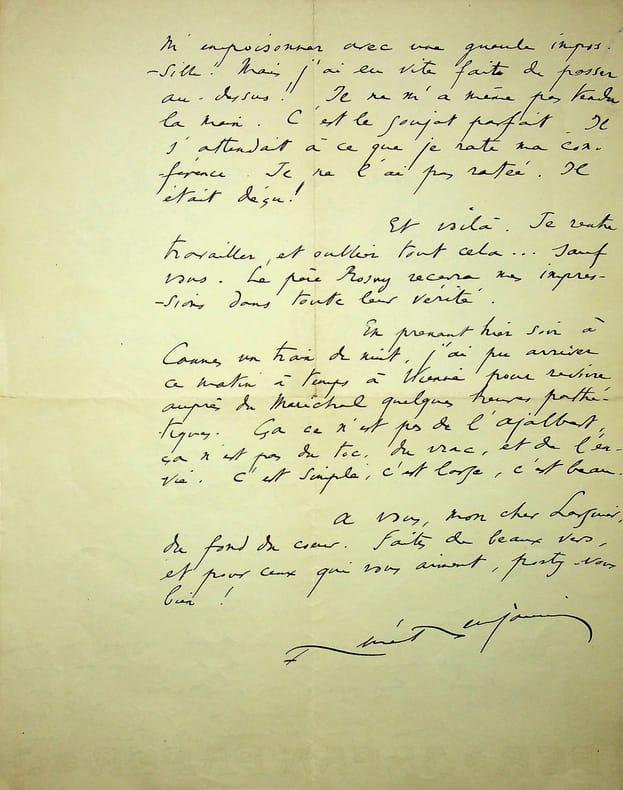 m'empoisonner avec une gueule impos-
-sible. Mais j'ai eu vite faite de passer
au-dessus! Il ne m'a même pas tendu
la main. C'est le goujat parfait. Il
s'attendait à ce que je rate ma con-
férence. Je ne l'ai pas ratée. Il
était déçu!
Et voilà. Je rentre
travailler, et oublier tout cela... sauf
vous. Le père Rosny recevra mes impres-
-sions dans toute leur vérité.
En prenant hier soir à
Cannes un train de nuit, j'ai pu arriver
ce matin à temps à pour revivre
auprès du Maréchal quelques heures pathé-
tiques. Ça ce n'est pas de l'ajalbert,
ça n'est pas du toc, du vrac, et de l'en-
vie. C'est simple, c'est large, c'est beau.
A vous, mon cher Larguier,
du fond du cœur. Faites de beaux vers,
et pour ceux qui vous aiment, portez-vous
bien!
René Benjamin